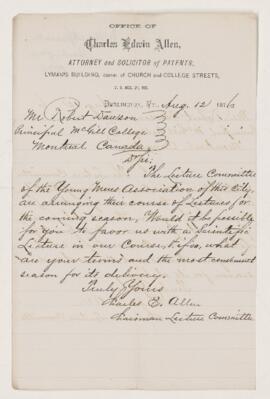 OFFICE OF
Charles Edwin Allen,
ATTORNEY and SOLICITOR of PATENTS,
LYMAN'S BUILDING, corner of CHURCH and COLLEGE STREETS,
BURLINGTON, VT., Aug. 12 18
Mr Robert Dawson
Principal McGill College
Montreal Canada
Sir;
The Lecture Committee
of the Young Mens Association of this City,
are arranging their course of Lectures for
the coming season. Would it be possible
for you to favor us with a Scientific
Lecture in our Course, & if so, what
are your terms and the most convenient
season for its delivery.
Truly Yours
Charles E. Allen
Chairman Lecture Committee